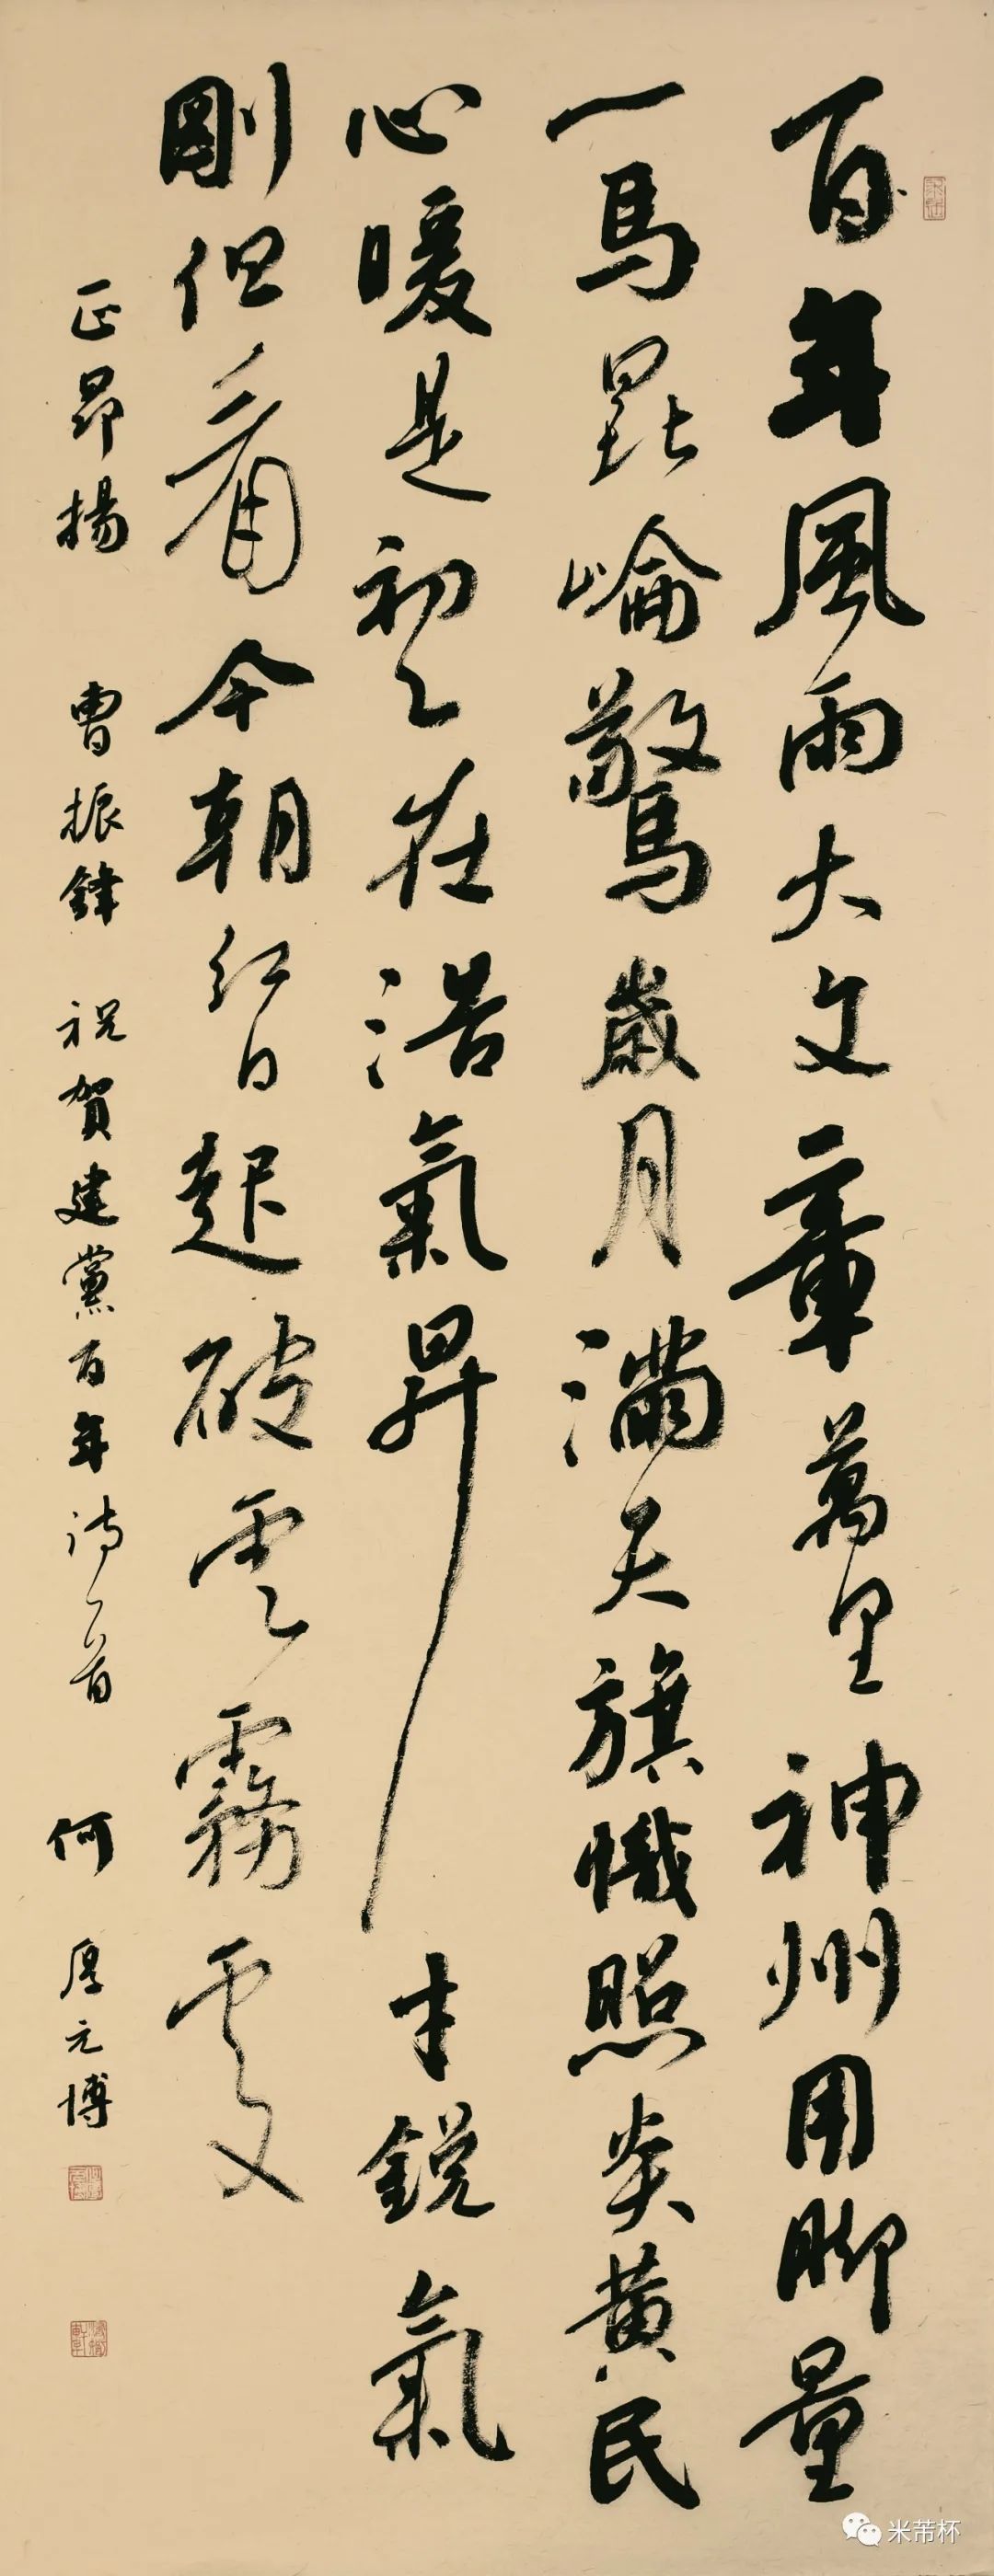 百年風雨大文章萬里神州用脚量
一馬崑崙驚歲月滿天旗幟照炎黃民
心暖是初心在浩氣昇平銳氣
剛但看今朝紅日起破雲霧雲又
正昂揚 曹振鋒 祝賀建黨百年詩一首 何厚元博
米芾杯